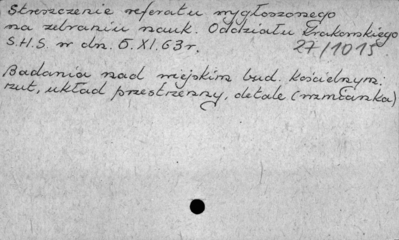 Streszczenie referatu wygłoszonego
na zebraniu nauk. Oddziału Krakowskiego
S.H.S. w dn. 5.XI.63r. 27/1015
Badania nad wiejskim bud. kościelnym:
rzut, układ przestrzenny, detale (wzmianka)